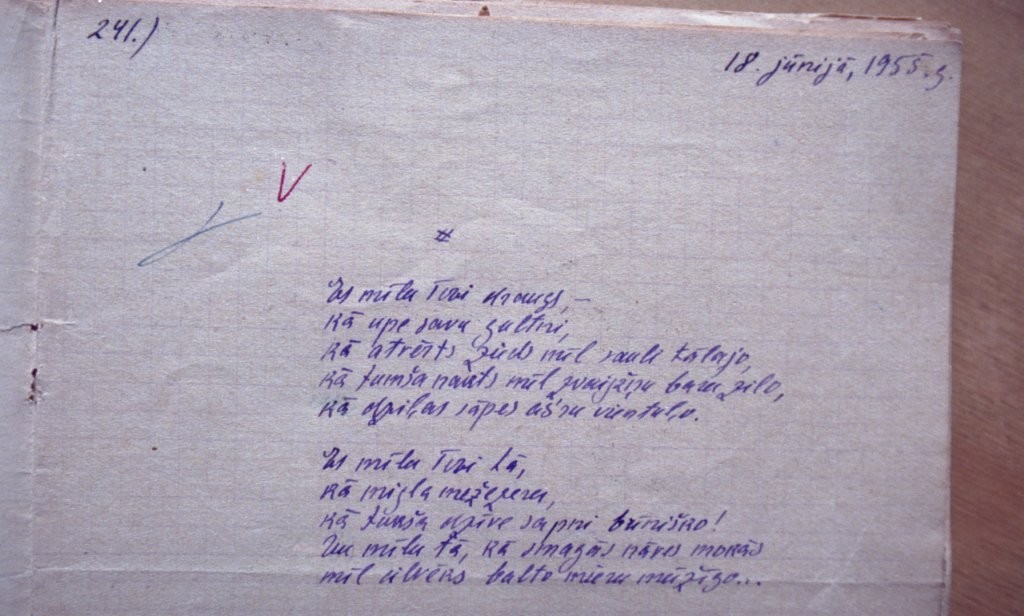 241.)
18. jūnijā, 1955. g.
V
#
Es mīlu Tevi draugs, –
kā upe savu gultni,
kā atvērts zieds mīl sauli tālajo,
kā tumša nakts mīl zvaigžņu baru zilo,
kā dziļas sāpes asaru vientuļo.
Es mīlu Tevi tā,
kā migla mežezeru,
kā tumša dzīve sapni brīnišķo!
Un mīlu tā, kā smagās nāves mokās
mīl cilvēks balto mieru mūžīgo...